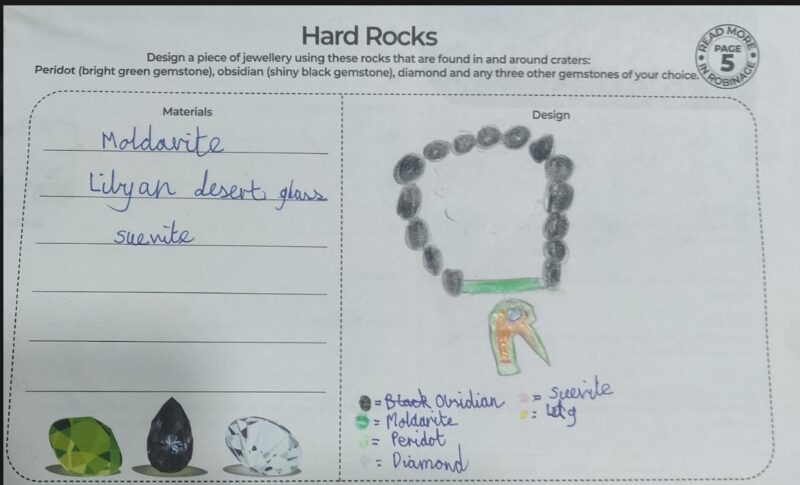 Hard Rocks
Design a piece of jewellery using these rocks that are found in and around craters:
Peridot (bright green gemstone), obsidian (shiny black gemstone), diamond and any three other gemstones of your choice.
READ MORE
PAGE
5
IN ROBINAGE
Materials
Moldavite
Libyan desert glass
suevite
Design
R
= Black Obsidian
= Moldavite
= Peridot
= Diamond
= Suevite